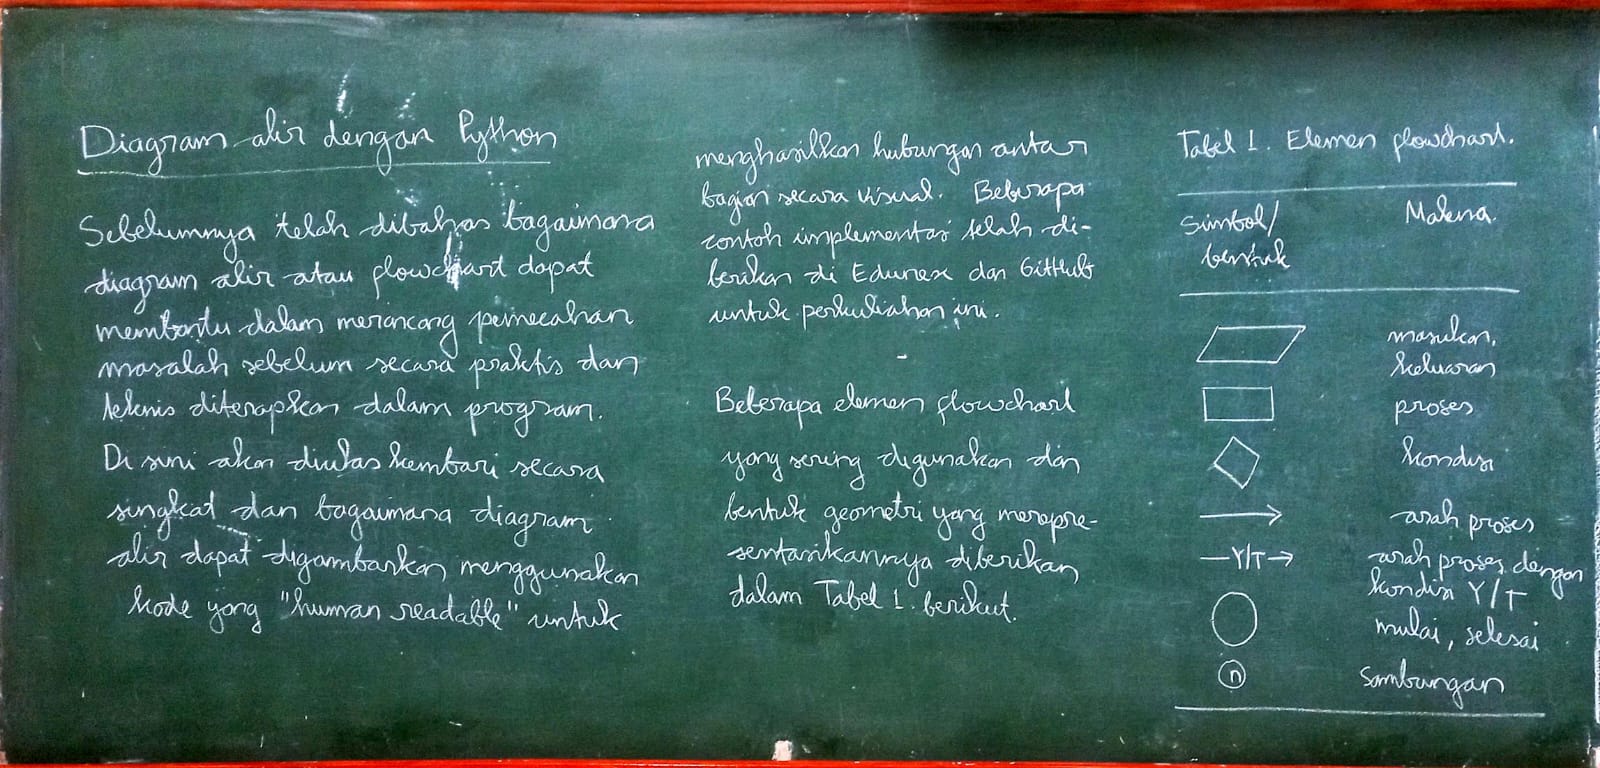 Diagram alir dengan Python
Sebelumnya telah dibahas bagaimana
diagram alir atau flowchart dapat
membantu dalam merancang pemecahan
masalah sebelum secara praktis dan
teknis diterapkan dalam program.
Di sini akan diulas kembari secara
singkat dan bagaimana diagram
alir dapat digambarkan menggunakan
kode yang "human readable" untuk
menghasilkan hubungan antar
bagian secara visual. Beberapa
contoh implementasi telah di-
berikan di Edunex dan GitHub
untuk perkuliahan ini.
Beberapa elemen flowchart
yang sering digunakan dan
bentuk geometri yang merepre-
sentasikannya diberikan
dalam Tabel 1. berikut.
Tabel 1. Elemen flowchart.
Simbol/ Makna.
bentuk
masukan,
keluaran
proses
kondisi
arah proses
—Y/T→ arah proses dengan
kondisi Y/T
mulai, selesai
n sambungan